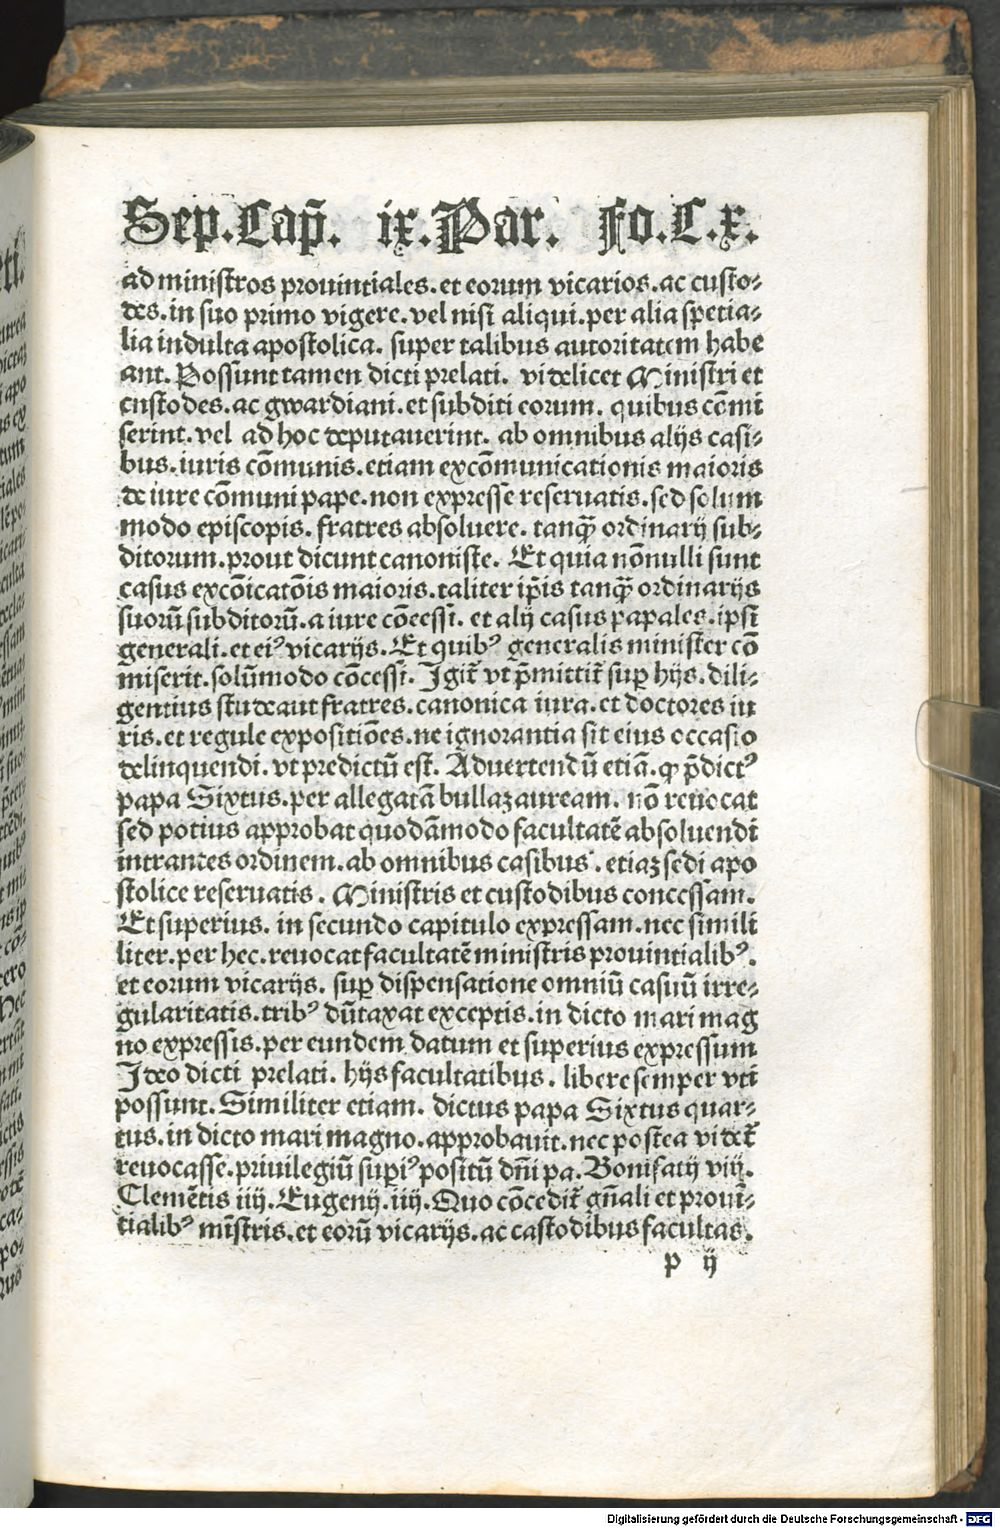 Sep.Cap̄. ix.Par. Fo.C.x.
ad ministros prouintiales.et eorum vicarios.ac custo-
des.in suo primo vigere.vel nisi aliqui.per alia spetia-
lia indulta apostolica. super talibus autoritatem habe
ant.Possunt tamen dicti prelati. videlicet Ministri et
custodes.ac gwardiani.et subditi eorum. quibus cōmi
serint.vel ad hoc deputauerint. ab omnibus alijs casi-
bus.iuris cōmunis.etiam excōmunicationis maioris
de iure cōmuni pape.non expresse reseruatis.sed solum
modo episcopis. fratres absoluere. tanꝙ̄ ordinarij sub-
ditorum.prout dicunt canoniste. Et quia nōnulli sunt
casus excōicatōis maioris.taliter ip̄is tanꝙ̄ ordinarijs
suorū subditorū.a iure cōcessi. et alij casus papales.ipsi
generali.et eiꝰ vicarijs.Et quibꝰ generalis minister cō
miserit.solūmodo cōcessi. Igit̄ vt p̄mittit̄ suꝑ hijs.dili-
gentius studeant fratres.canonica iura.et doctores iu
ris.et regule expositiōes.ne ignorantia sit eius occasio
delinquendi.vt predictū est. Aduertendū etiā.ꝙ p̄dictꝰ
papa Sixtus.per allegatā bullaꝫ auream. nō reuocat
sed potius approbat quodāmodo facultatē absoluendi
intrantes ordinem.ab omnibus casibus.etiaꝫ sedi apo
stolice reseruatis. Ministris et custodibus concessam.
Et superius. in secundo capitulo expressam.nec simili
liter.per hec.reuocat facultatē ministris prouintialibꝰ.
et eorum vicarijs. suꝑ dispensatione omniū casuū irre-
gularitatis.tribꝰ dūtaxat exceptis.in dicto mari mag
no expressis.per eundem datum et superius expressum
Ideo dicti prelati. hijs facultatibus. libere semper vti
possunt. Similiter etiam. dictus papa Sixtus quar-
tus.in dicto mari magno.approbauit.nec postea videt̄
reuocasse.priuilegiū suꝑiꝰ positū dn̄i pa.Bonifatij viij.
Clemētis iiij.Eugenij.iiij.Quo cōcedit̄ gn̄ali et prouī-
tialibꝰ mīstris.et eorū vicarijs.ac castodibus facultas.
p ij
Digitalisierung gefördert durch die Deutsche Forschungsgemeinschaft - DFG